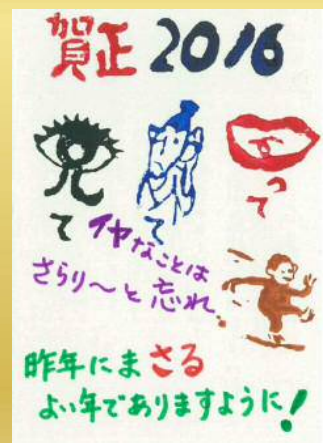 賀正 2016
見て 聞て 言って
イヤなことは
さらり〜と忘れ
昨年にまさる
よい年でありますように!